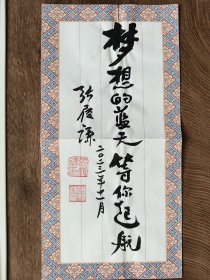 梦想的蓝天等你起航
张履谦
二〇二三年十一月